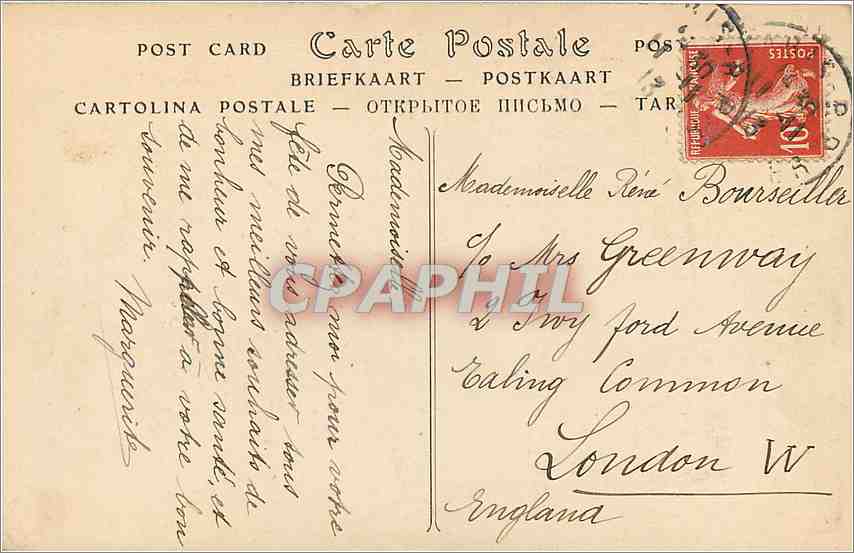 POST CARD Carte Postale POS
BRIEFKAART — POSTKAART
CARTOLINA POSTALE — ОТКРЫТОЕ ПИСЬМО — TAR
POSTES
REPUBLIQUE
10
Mademoiselle
Permettez moi pour votre
fête de vous adresser tous
mes meilleurs souhaits de
bonheur et bonne santé, et
de me rappeler à votre bon
souvenir.
Marguerite
Mademoiselle Réné Bourseiller
c/o Mrs Greenway
2 Ivy ford Avenue
Ealing Common
London W
England
CPAPHIL